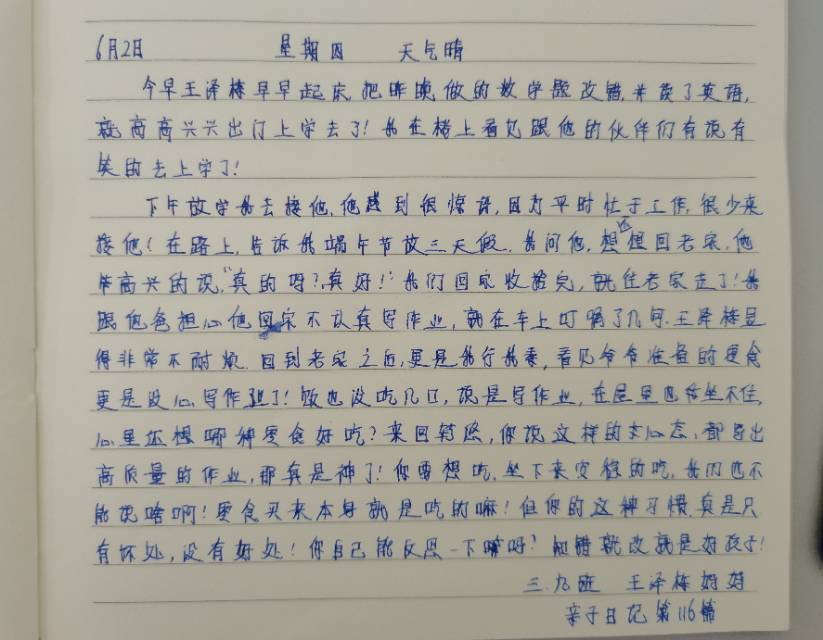 6月2日 星期四 天气晴
今早王泽栋早早起床,把昨晚做的数学题改错,并读了英语,
就高高兴兴出门上学去了!我在楼上看见跟他的伙伴们有说有
笑的去上学了!
下午放学我去接他,他感到很惊讶,因为平时忙于工作,很少来
接他!在路上,告诉我端午节放三天假,我问他,想想回老家,他
高兴的说,"真的吗?真好!"我们回家收拾完,就往老家走了!我
跟他爸担心他回家不认真写作业,就在车上叮嘱了几句.王泽栋显
得非常不耐烦.回到老家之后,更是我行我素,看见爷爷准备的零食
更是没心写作业了!饭也没吃几口,说是写作业,在屋里也坐不住,
心里还想哪种零食好吃?来回转悠,你说这样的心态,都写出
高质量的作业,那真是神了!你要想吃,坐下来安稳的吃,我们也不
能说啥啊!零食买来本身就是吃的嘛!但你的这种习惯,真是只
有坏处,没有好处!你自己能反思一下嘛吗?知错就改就是好孩子!
三.九班 王泽栋妈妈
亲子日记第116篇